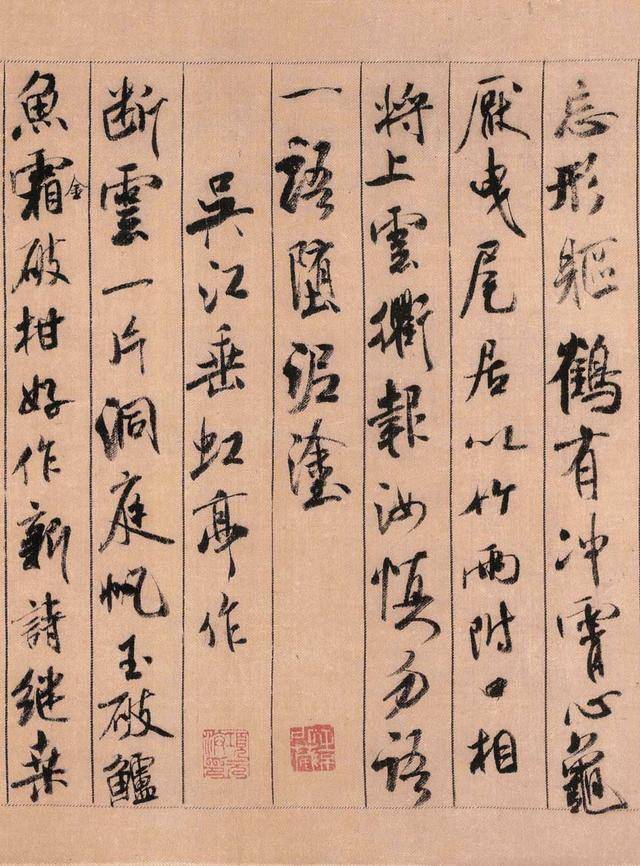 忘形軀鶴有冲霄心龜
厭曳尾居以竹兩附口相
將上雲衢報汝慎勿語
一語墮泥塗
吳江垂虹亭作
断雲一片洞庭帆玉破鱸
魚霜金破柑好作新詩継桒